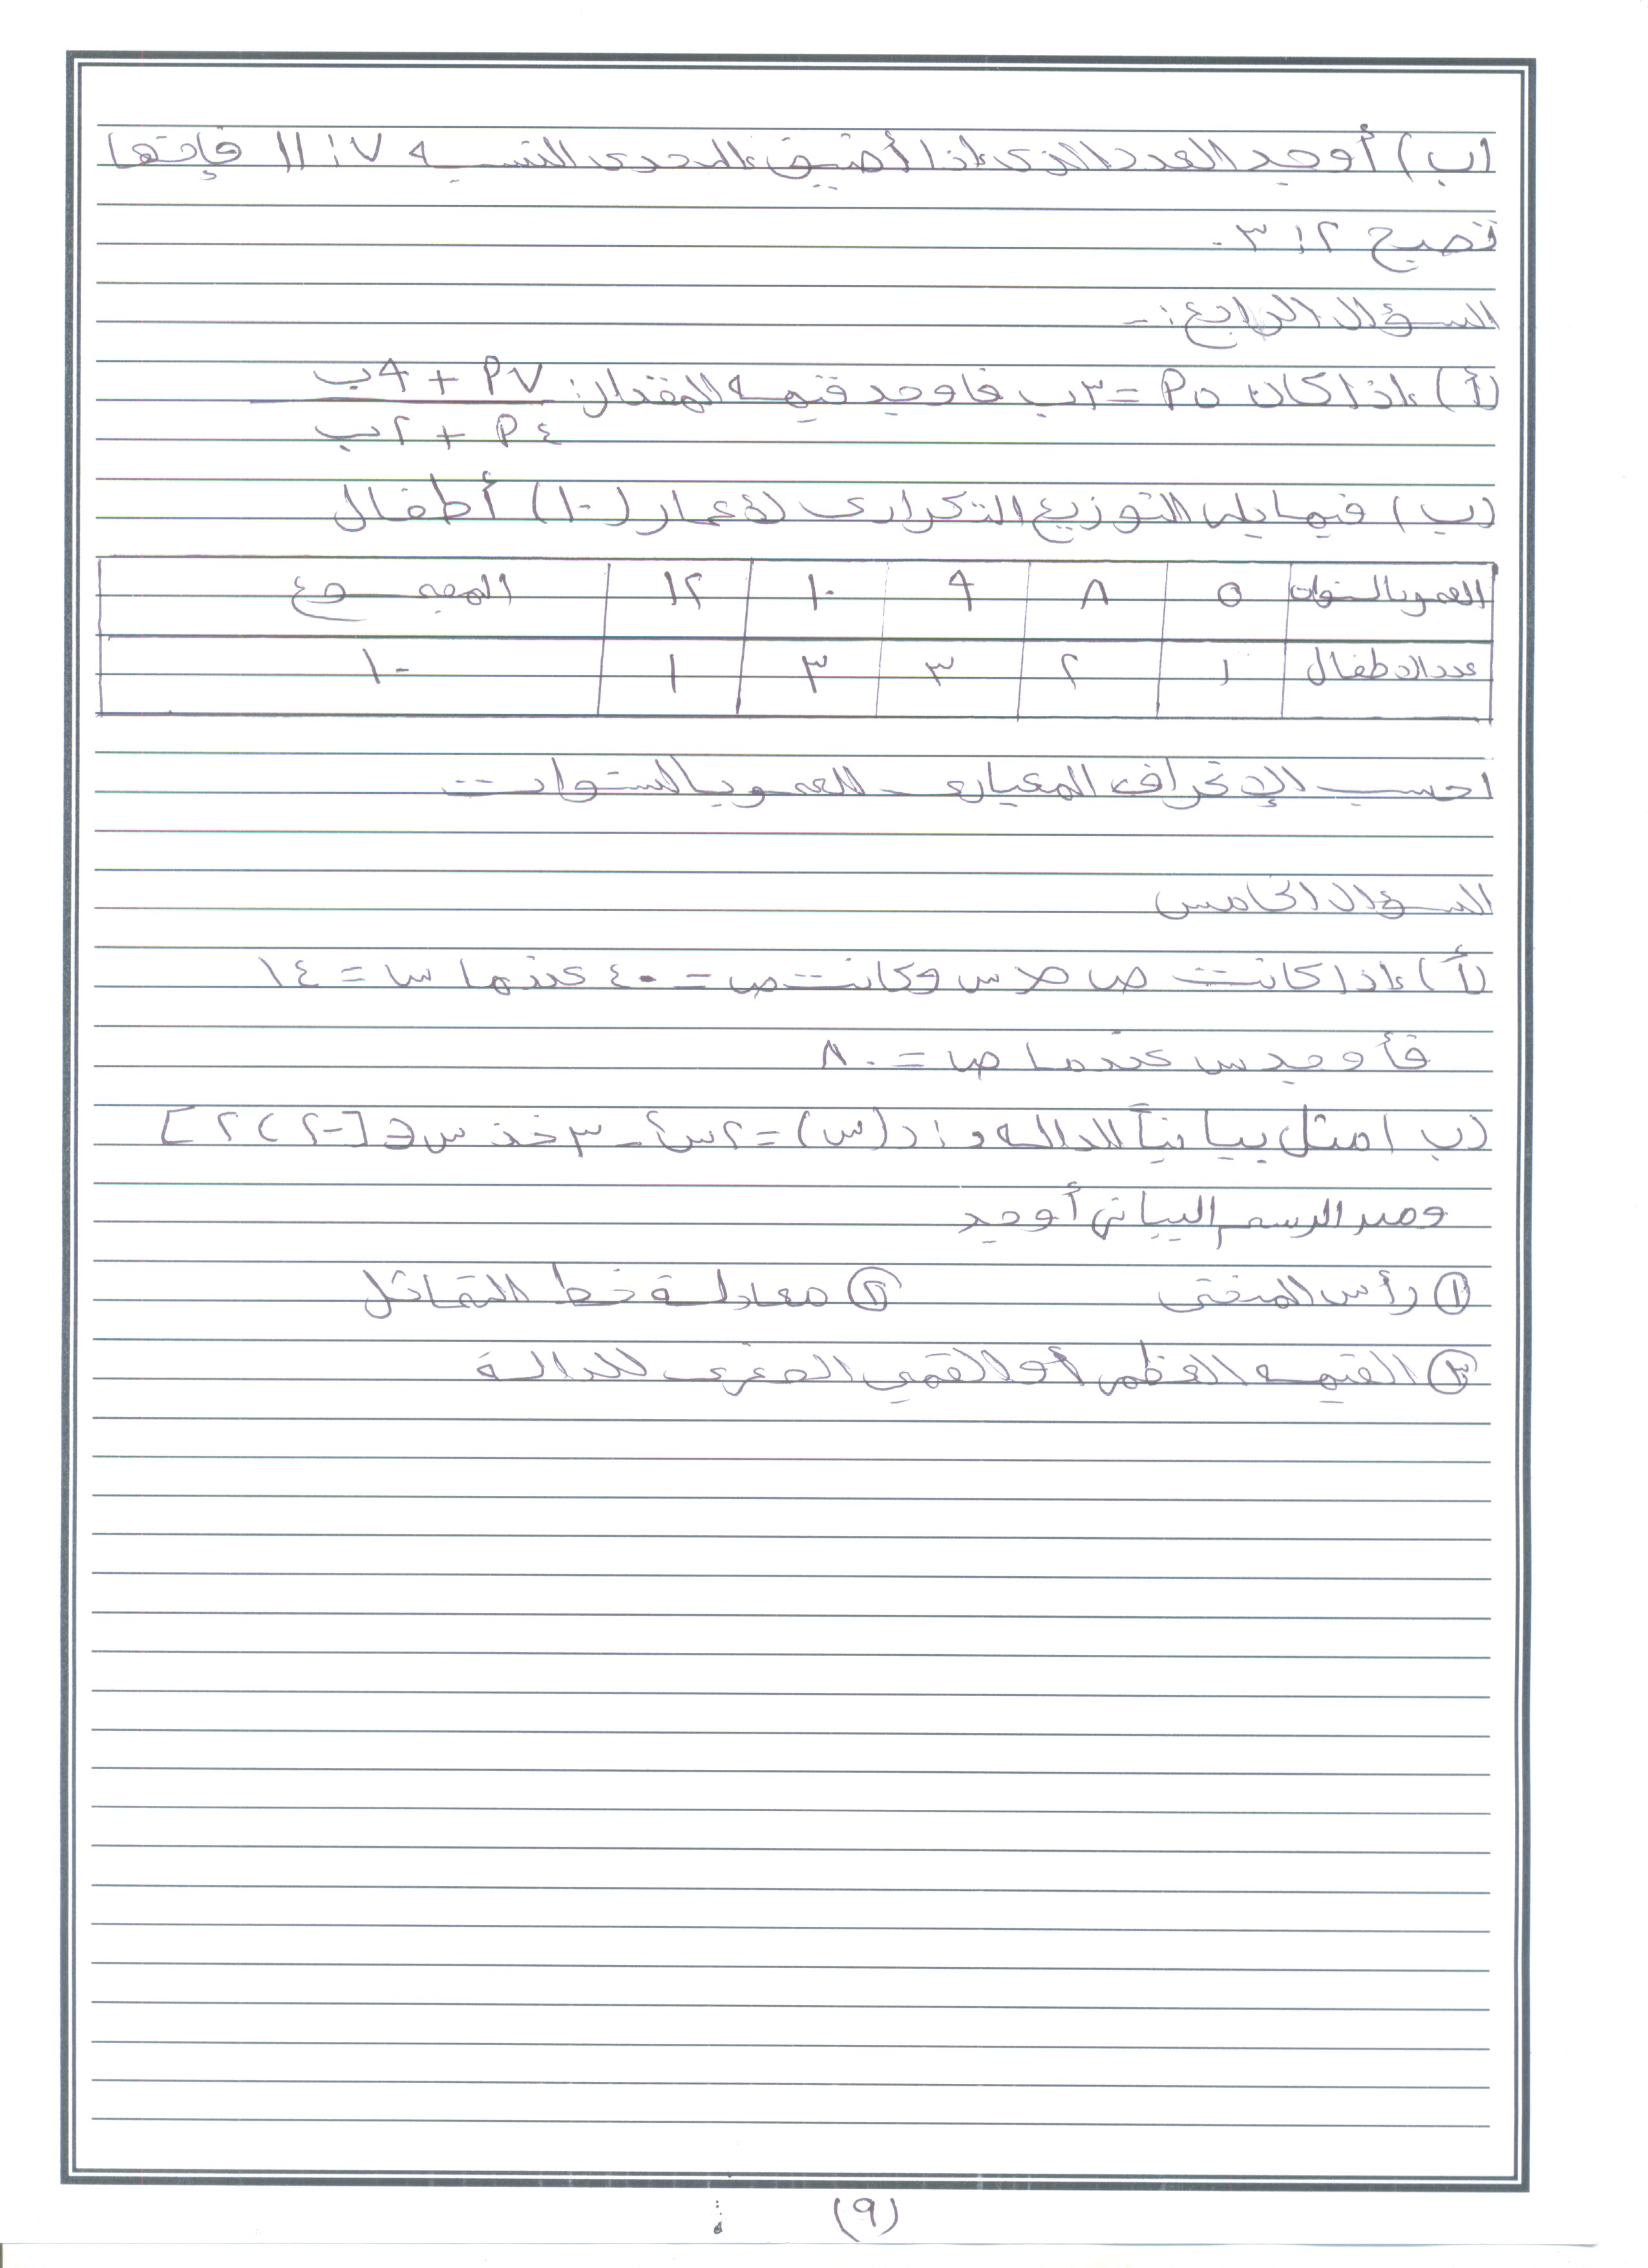 (ب) أوجد العدد الذى إذا أضيف إلى حدى النسبه ٧ : ١١ فإنها
تصبح ٢ : ٣ .
السؤال الرابع :-
(أ) إذا كان ٥ م = ٣ ب فاوجد قيمه المقدار : ٧ م + ٩ ب
٤ م + ٢ ب
(ب) فيما يلى التوزيع التكرارى لأعمار (١٠) أطفال
العمر بالسنوات ٥ ٨ ٩ ١٠ ١٢ المجموع
عدد الاطفال ١ ٢ ٣ ٣ ١ ١٠
احسب الإنحراف المعيارى للعمر بالسنوات
السؤال الخامس
(أ) إذا كانت ص ∝ س وكانت ص = ٤٠ عندما س = ١٤
فأوجد س عندما ص = ٨٠
(ب) مثل بيانياً الداله د : د(س) = ٢س² - ٣ خذ س ∈ [-٢ ، ٢]
ومن الرسم البيانى أوجد
① رأس المنحنى ② معادلة خط التماثل
③ القيمه العظمى أو القيمى الصغرى للدالة
(٩)